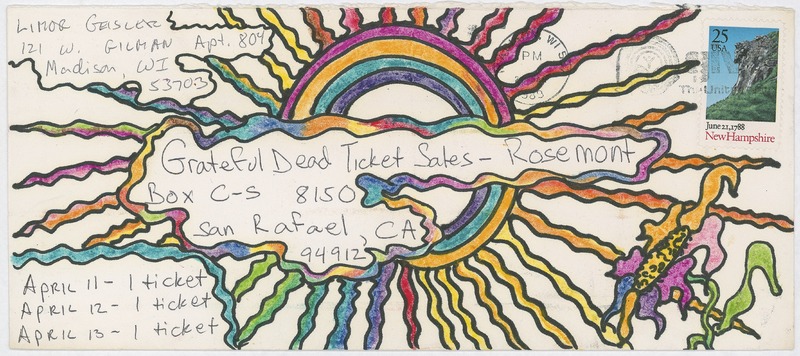 LIMOR GEISLER
121 W. GILMAN Apt. 804
Madison, WI
53703
PM
WIS
1989
25
USA
June 21, 1788
New Hampshire
Grateful Dead Ticket Sales - Rosemont
Box C-S 8150
San Rafael, CA
94912
APRIL 11 - 1 ticket
APRIL 12 - 1 ticket
APRIL 13 - 1 ticket